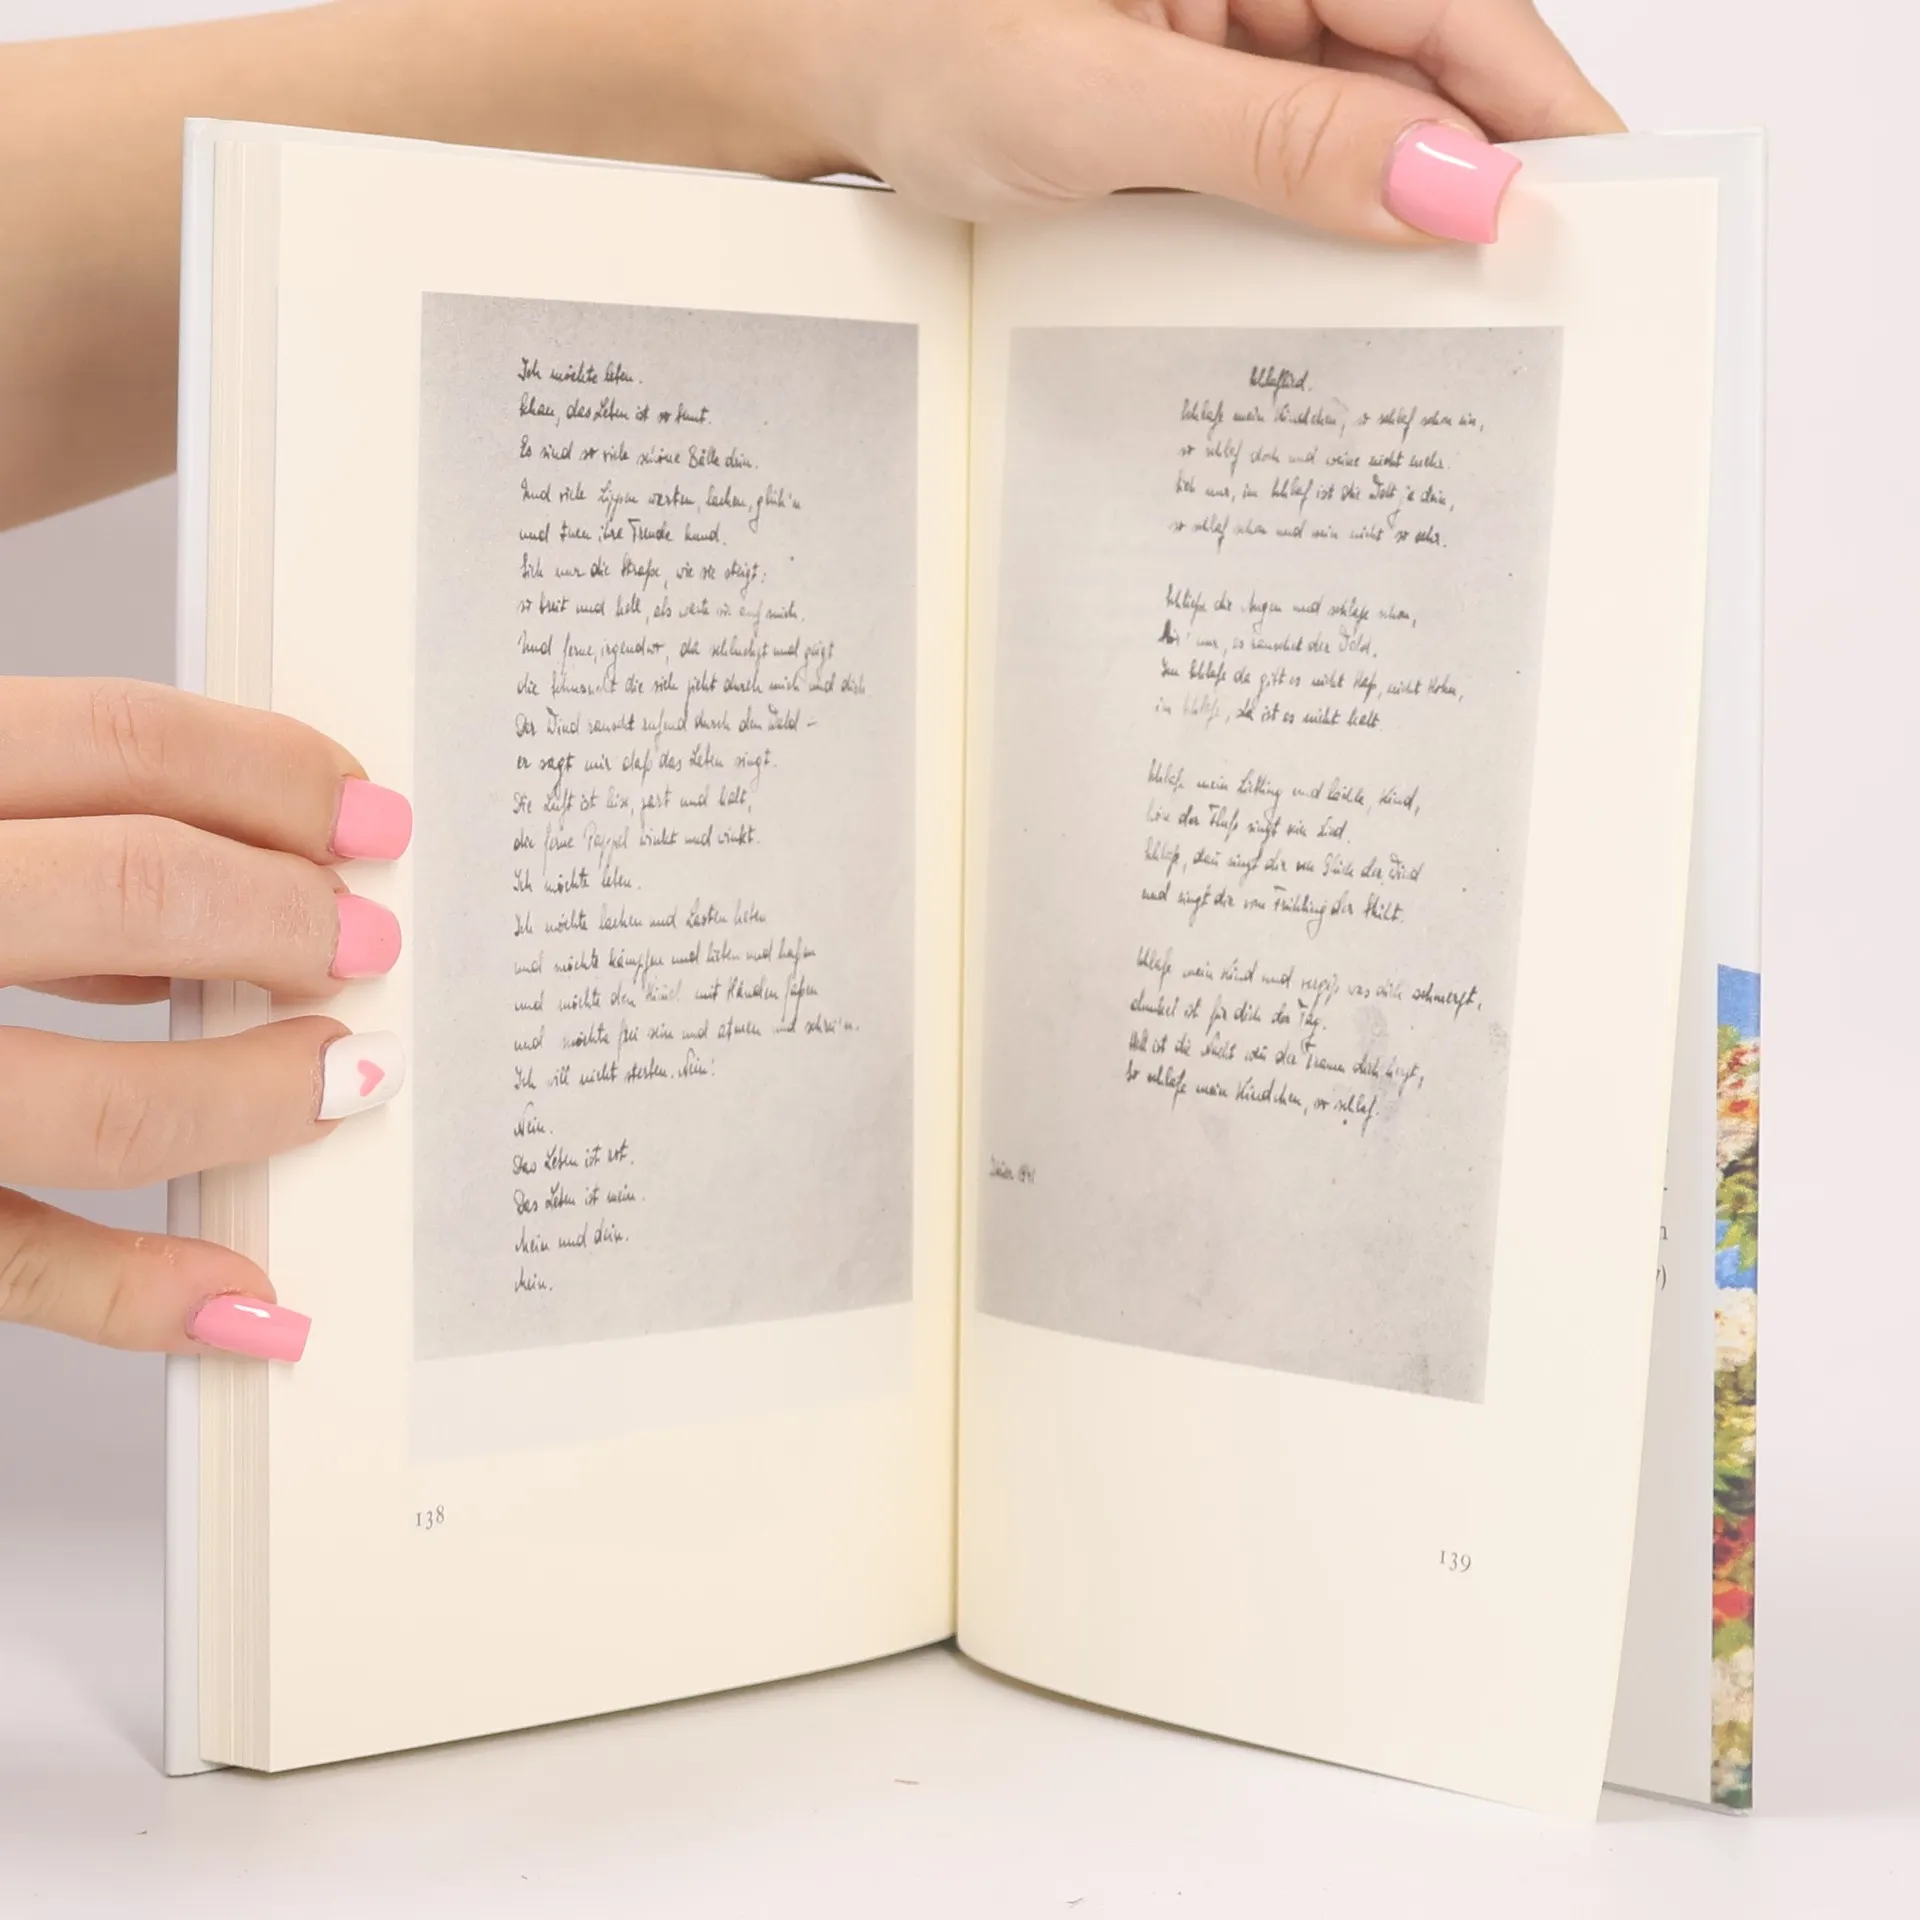 Ich möchte leben.
Schau, das Leben ist so bunt.
Es sind so viele schöne Bälle drin.
Und viele Lippen warten, lachen, glüh'n
und tuen ihre Freude kund.
Sieh nur die Straße, wie sie steigt:
so breit und hell, als warte sie auf mich.
Und ferne, irgendwo, da schluchzt und geigt
die Sehnsucht die sich zieht durch mich und dich.
Der Wind rauscht rufend durch den Wald –
er sagt mir daß das Leben singt.
Die Luft ist leise, zart und kalt,
die ferne Pappel winkt und winkt.
Ich möchte leben.
Ich möchte lachen und Lasten heben
und möchte kämpfen und lieben und hassen
und möchte den Himmel mit Händen fassen
und möchte frei sein und atmen und schrei'n.
Ich will nicht sterben. Nein!
Nein.
Das Leben ist rot.
Das Leben ist mein.
Mein und dein.
Mein.
138
Schlaflied.
Schlafe mein Kindchen, so schlaf schon ein,
so schlaf doch und weine nicht mehr.
Sieh nur, im Schlaf ist die Welt ja dein,
so schlaf schon und wein nicht so sehr.
Schließe die Augen und schlafe schon,
hör' nur, es rauschet der Wald.
Im Schlafe da gibt es nicht Haß, nicht Hohn,
im Schlafe, da ist es nicht kalt.
Schlafe mein Liebling und lächle, Kind,
höre der Fluß singt sein Lied.
Schlafe, dann singt dir vom Glück der Wind
und singt dir vom Frühling der blüht.
Schlafe mein Kind und vergiß was dich schmerzt,
dunkel ist für dich der Tag.
Hell ist die Nacht wenn der Traum dich herzt,
So schlafe mein Kindchen, so schlaf.
1941
139